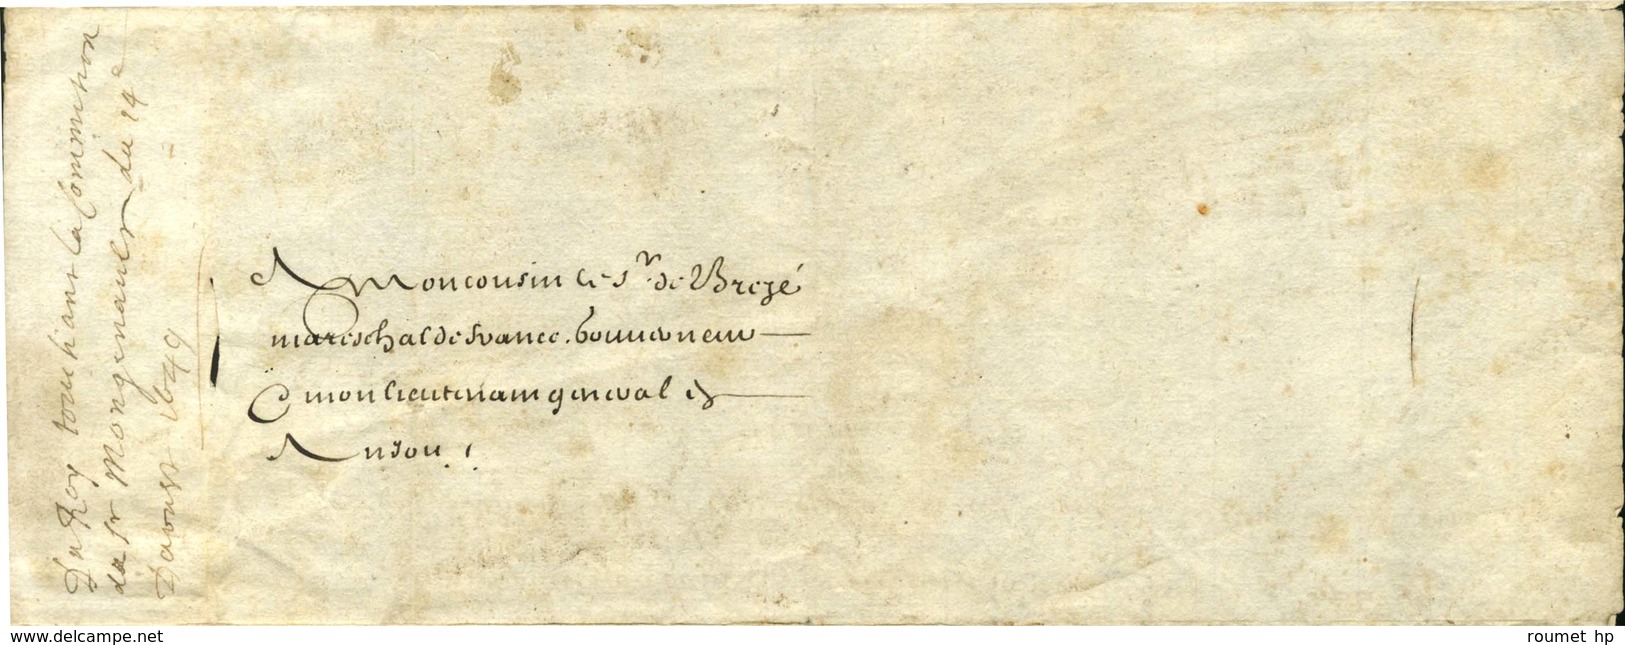 A Mon cousin le Sr de Brezé
mareschal de france, Gouverneur
& mon lieutenant general en
Anjou.
Du Roy touchant la Commission
du sr du 14e
Daoust 1649
www.delcampe.net
roumet hp